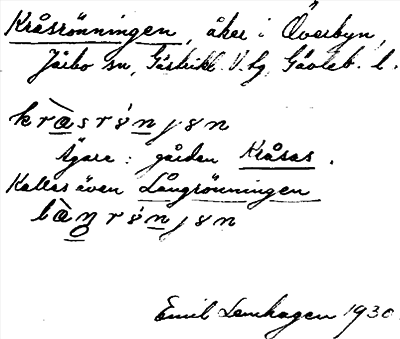 Kråsrönningen, åker i Överbyn,
Järbo sn, Gästrikl. V. hg, Gävleb. l.
kràsrönɪŋən
Ägare: gården Kråsas.
Kallas även Långrönningen
làŋrönɪŋən
Emil Lenhagen 1930